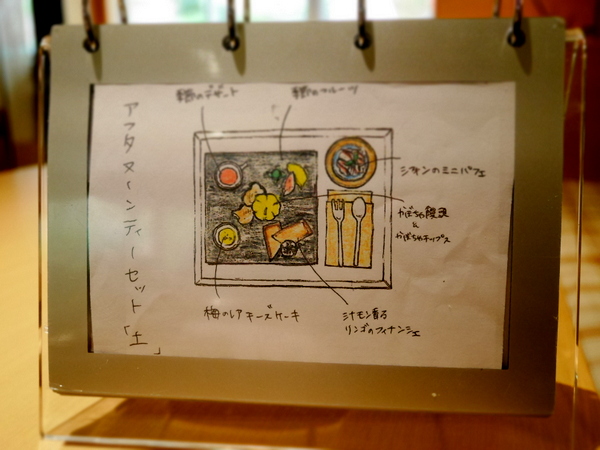 アフタヌーンティーセット「土」
季節のデザート
季節のフルーツ
シフォンのミニパフェ
かぼちゃ饅頭
&
かぼちゃチップス
梅のレアチーズケーキ
シナモン香る
リンゴのフィナンシェ